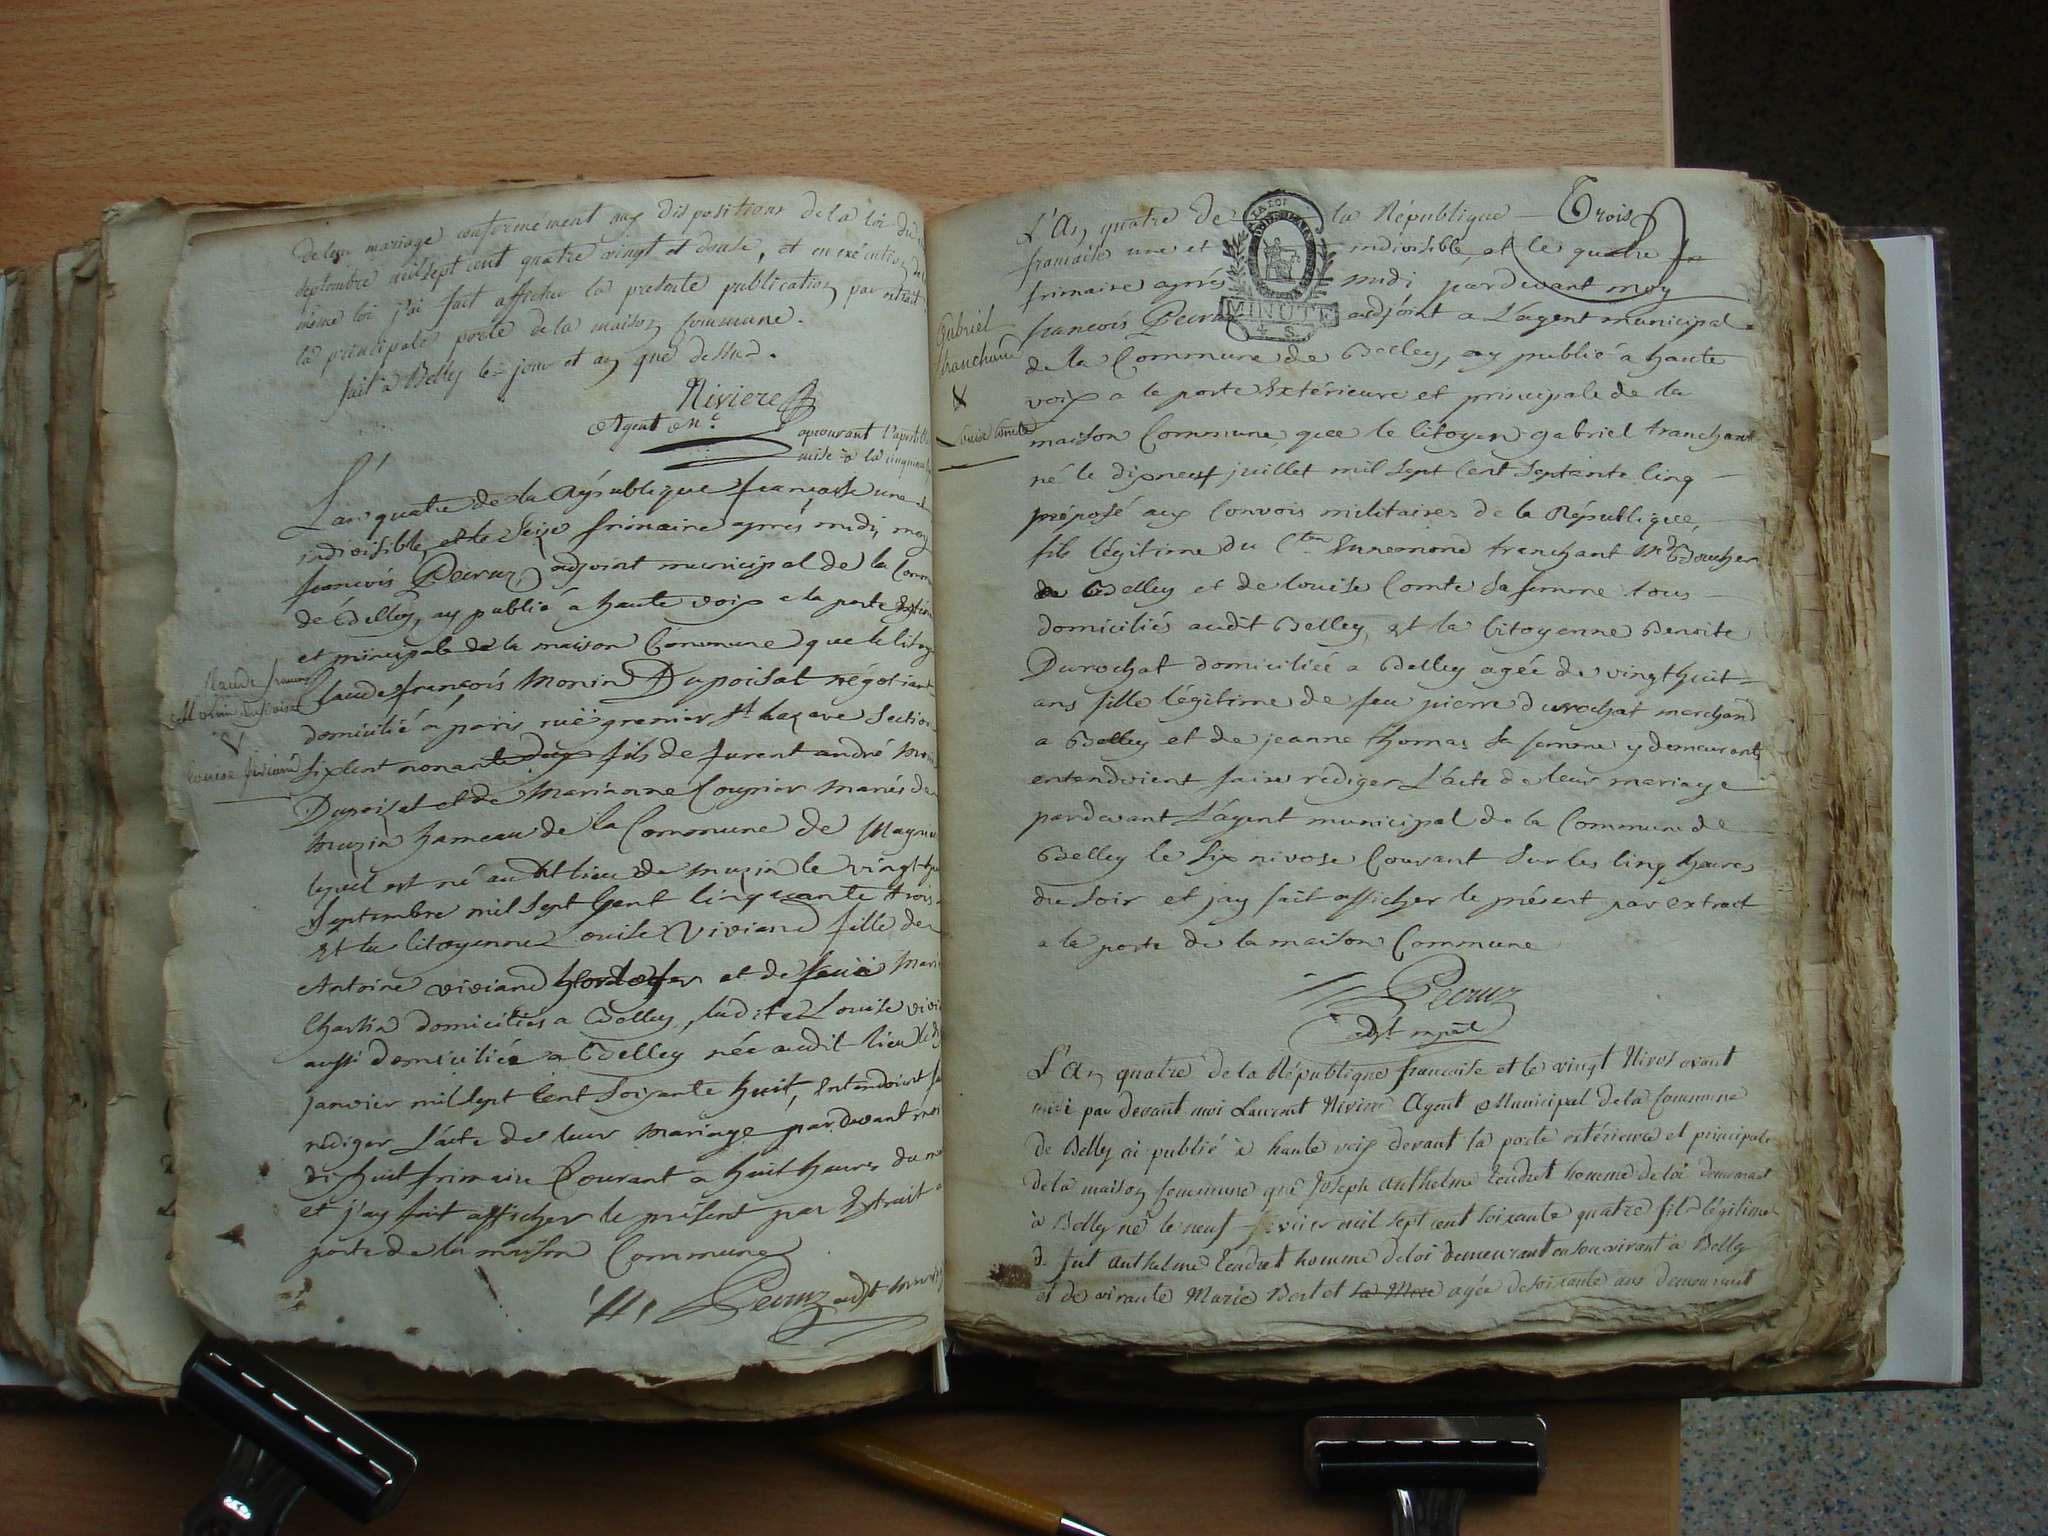 de leur mariage conformément aux dispositions de la loi du
septembre mil sept cent quatre vingt et douse, et en exécution de la
même loi j'ai fait afficher la presente publication par extrait
la principale porte de la maison commune.
fait à Belley les jour et an que dessus.
Riviere
Agent M.
aprouvant l'apostille
mise à la cinquieme
L'an quatre de la République françoise une et
indivisible, et le seise frimaire aprés midi, moy
françois Peïruz, adjoint municipal de la Comm
de Belley, ay publié a haute voix a la porte
et principale de la maison Commune que le Citoy
Claude françois Monin Dupoisat négotiant
domicilié a paris ruë grenier St Lazare Section
Six Cent nonante deux fils de furent andré Mon
Dupoisat et de Marianne Cognier Mariés de
Muzin hameau de la Commune de Magnieu
lequel est né audit lieu de muzin le vingt
Septembre mil sept Cent Cinquante trois
Et la Citoyenne Louise Viviand fille de
Antoine viviand horloger et de Marie
Charlin domiciliés a Belley, ladite Louise vivi
aussi domiciliée a Belley née audit lieu le
janvier mil sept Cent Soixante huit, Entendoient
rédiger L'acte de leur Mariage pardevant
dihuit frimaire Courant a huit heures du
et j'ay fait afficher le présent par Extrait a
porte de la maison Commune
Peïruz adjt
Claude françois
Monin dupoisat
X
Louise Viviand
L'An quatre de la République Trois
francaise une et indivisible, et le quatre
frimaire aprés midi pardevant moy
françois Peïruz adjoint a L'agent municipal
de la Commune de Belley, ay publié a haute
voix a la porte Extérieure et principale de la
maison Commune, que le Citoyen gabriel tranchant
né le dix neuf juillet mil sept Cent Septante Cinq
préposé aux Convois militaires de la République,
fils légitime du Cten Enremond tranchant Md Boucher
de Belley et de Louise Comte sa femme tous
domiciliés audit Belley, Et la Citoyenne Benoite
Durochat domiciliée a Belley agée de vingt huit
ans fille légitime de feu pierre durochat marchand
a Belley et de jeanne thomas sa femme y demeurant
entendoient faire rédiger L'acte de leur mariage
pardevant L'agent municipal de la Commune de
Belley le Six nivose Courant sur les Cinq heures
du soir et jay fait afficher le présent par extrait
a la porte de la maison Commune
Peïruz
adjt mpal
Gabriel
tranchant
X
Louise Comte
LA LOI
MINUTE
4 S.
L'An quatre de la République francaise et le vingt Nivos avant
midi par devant moi Laurent Riviere Agent Municipal de la Commune
de Belley ai publié à haute voix devant la porte extérieure et principale
de la maison commune que Joseph Anthelme Tendret homme de loi demeurant
à Belley né le neuf mil sept cent soixante quatre fils légitime
d. fut Anthelme Tendret homme de loi demeurant en son vivant à Belley
et de vivante Marie Bert et sa Mere agée de soixante ans demeurant